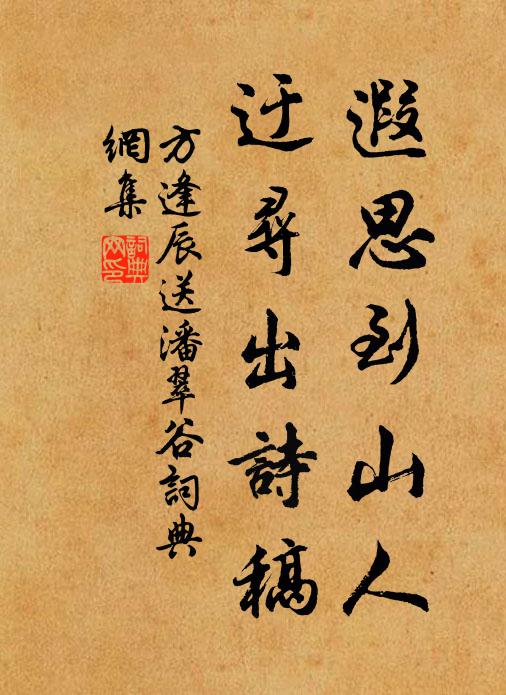 遐思到山人
迂尋出詩稿
方逢辰送潘翠谷詞典
網集
詞典
网印